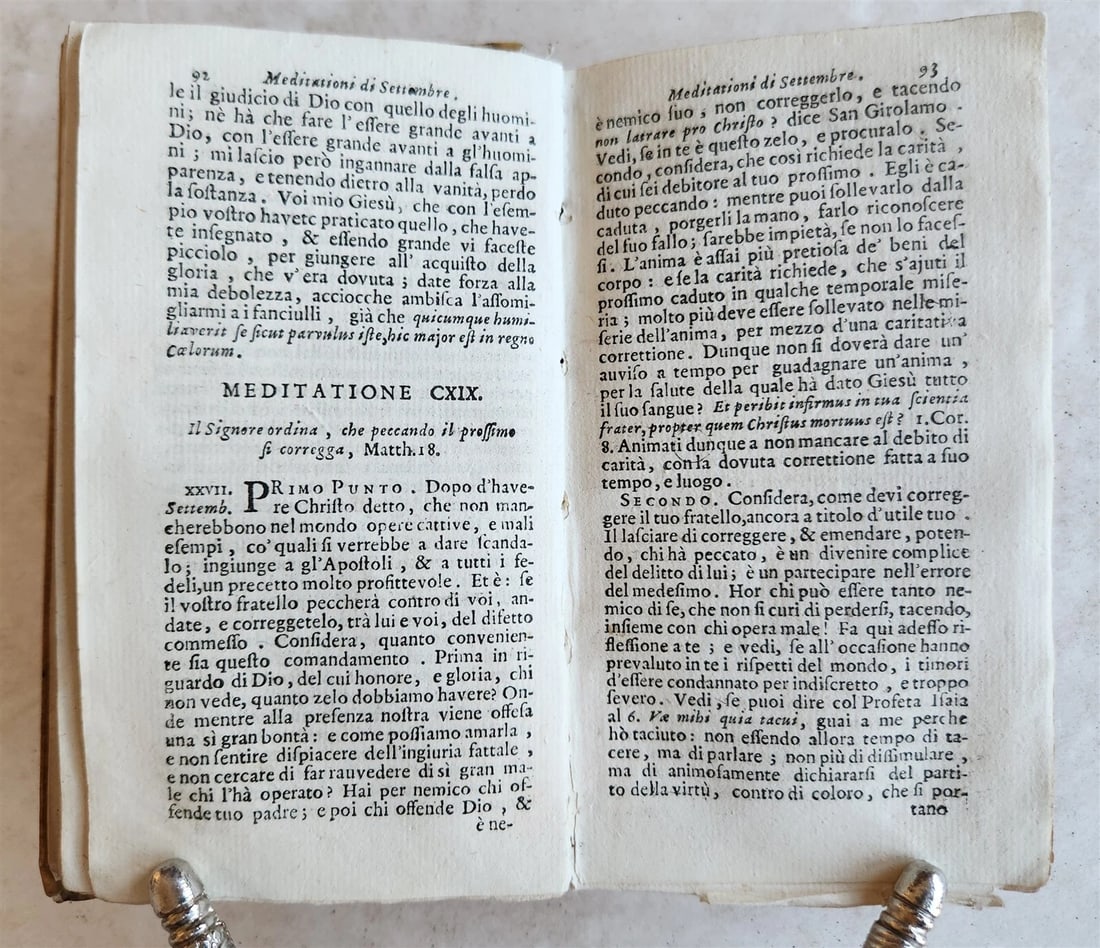 92 Meditationi di Settembre.
le il giudicio di Dio con quello degli huomi-
ni; nè hà che fare l'eſſere grande avanti a
Dio, con l'eſſere grande avanti a gl'huomi-
ni; mi laſcio però ingannare dalla falſa ap-
parenza, e tenendo dietro alla vanità, perdo
la ſoſtanza. Voi mio Gieſù, che con l'eſem-
pio voſtro havete praticato quello, che have-
te inſegnato, & eſſendo grande vi faceſte
picciolo, per giungere all' acquiſto della
gloria, che v'era dovuta; date forza alla
mia debolezza, acciocche ambiſca l'aſſomi-
gliarmi a i fanciulli, già che quicumque humi-
liaverit ſe ſicut parvulus iſte, hic major eſt in regno
Cælorum.
MEDITATIONE CXIX.
Il Signore ordina, che peccando il proſſimo
ſi corregga, Matth. 18.
XXVII. PRIMO PUNTO. Dopo d'have-
Settemb. re Chriſto detto, che non man-
cherebbono nel mondo opere cattive, e mali
eſempi, co' quali ſi verrebbe a dare ſcanda-
lo; ingiunge a gl'Apoſtoli, & a tutti i fe-
deli, un precetto molto profittevole. Et è: ſe
il voſtro fratello peccherà contro di voi, an-
date, e correggetelo, trà lui e voi, del difetto
commeſſo. Conſidera, quanto convenien-
te ſia queſto comandamento. Prima in ri-
guardo di Dio, del cui honore, e gloria, chi
non vede, quanto zelo dobbiamo havere? On-
de mentre alla preſenza noſtra viene offeſa
una sì gran bontà: e come poſſiamo amarla,
e non ſentire diſpiacere dell'ingiuria fattale,
e non cercare di far rauvedere di sì gran ma-
le chi l'hà operato? Hai per nemico chi of-
fende tuo padre; e poi chi offende Dio, &
è ne-
Meditationi di Settembre. 93
è nemico ſuo, non correggerlo, e tacendo
non latrare pro Chriſto? dice San Girolamo.
Vedi, ſe in te è queſto zelo, e procuralo. Se-
condo, conſidera, che così richiede la carità,
di cui ſei debitore al tuo proſſimo. Egli è ca-
duto peccando: mentre puoi ſollevarlo dalla
caduta, porgerli la mano, farlo riconoſcere
del ſuo fallo; ſarebbe impietà, ſe non lo faceſ-
ſi. L'anima è aſſai più pretioſa de' beni del
corpo: e ſe la carità richiede, che s'ajuti il
proſſimo caduto in qualche temporale miſe-
ria; molto più deve eſſere ſollevato nelle mi-
ſerie dell'anima, per mezzo d'una caritativa
correttione. Dunque non ſi doverà dare un'
auviſo a tempo per guadagnare un'anima,
per la ſalute della quale hà dato Gieſù tutto
il ſuo ſangue? Et peribit infirmus in tua ſcientia
frater, propter quem Chriſtus mortuus eſt? 1. Cor.
8. Animati dunque a non mancare al debito di
carità, con la dovuta correttione fatta a ſuo
tempo, e luogo.
SECONDO. Conſidera, come devi correg-
gere il tuo fratello, ancora a titolo d'utile tuo.
Il laſciare di correggere, & emendare, poten-
do, chi hà peccato, è un divenire complice
del delitto di lui; è un partecipare nell'errore
del medeſimo. Hor chi può eſſere tanto ne-
mico di ſe, che non ſi curi di perderſi, tacendo,
inſieme con chi opera male! Fa qui adeſſo ri-
fleſſione a te; e vedi, ſe all' occaſione hanno
prevaluto in te i riſpetti del mondo, i timori
d'eſſere condannato per indiſcretto, e troppo
ſevero. Vedi, ſe puoi dire col Profeta Iſaia
al 6. Væ mihi quia tacui, guai a me perche
hò taciuto: non eſſendo allora tempo di ta-
cere, ma di parlare; non più di diſſimulare,
ma di animoſamente dichiararſi del parti-
to della virtù, contro di coloro, che ſi por-
tano